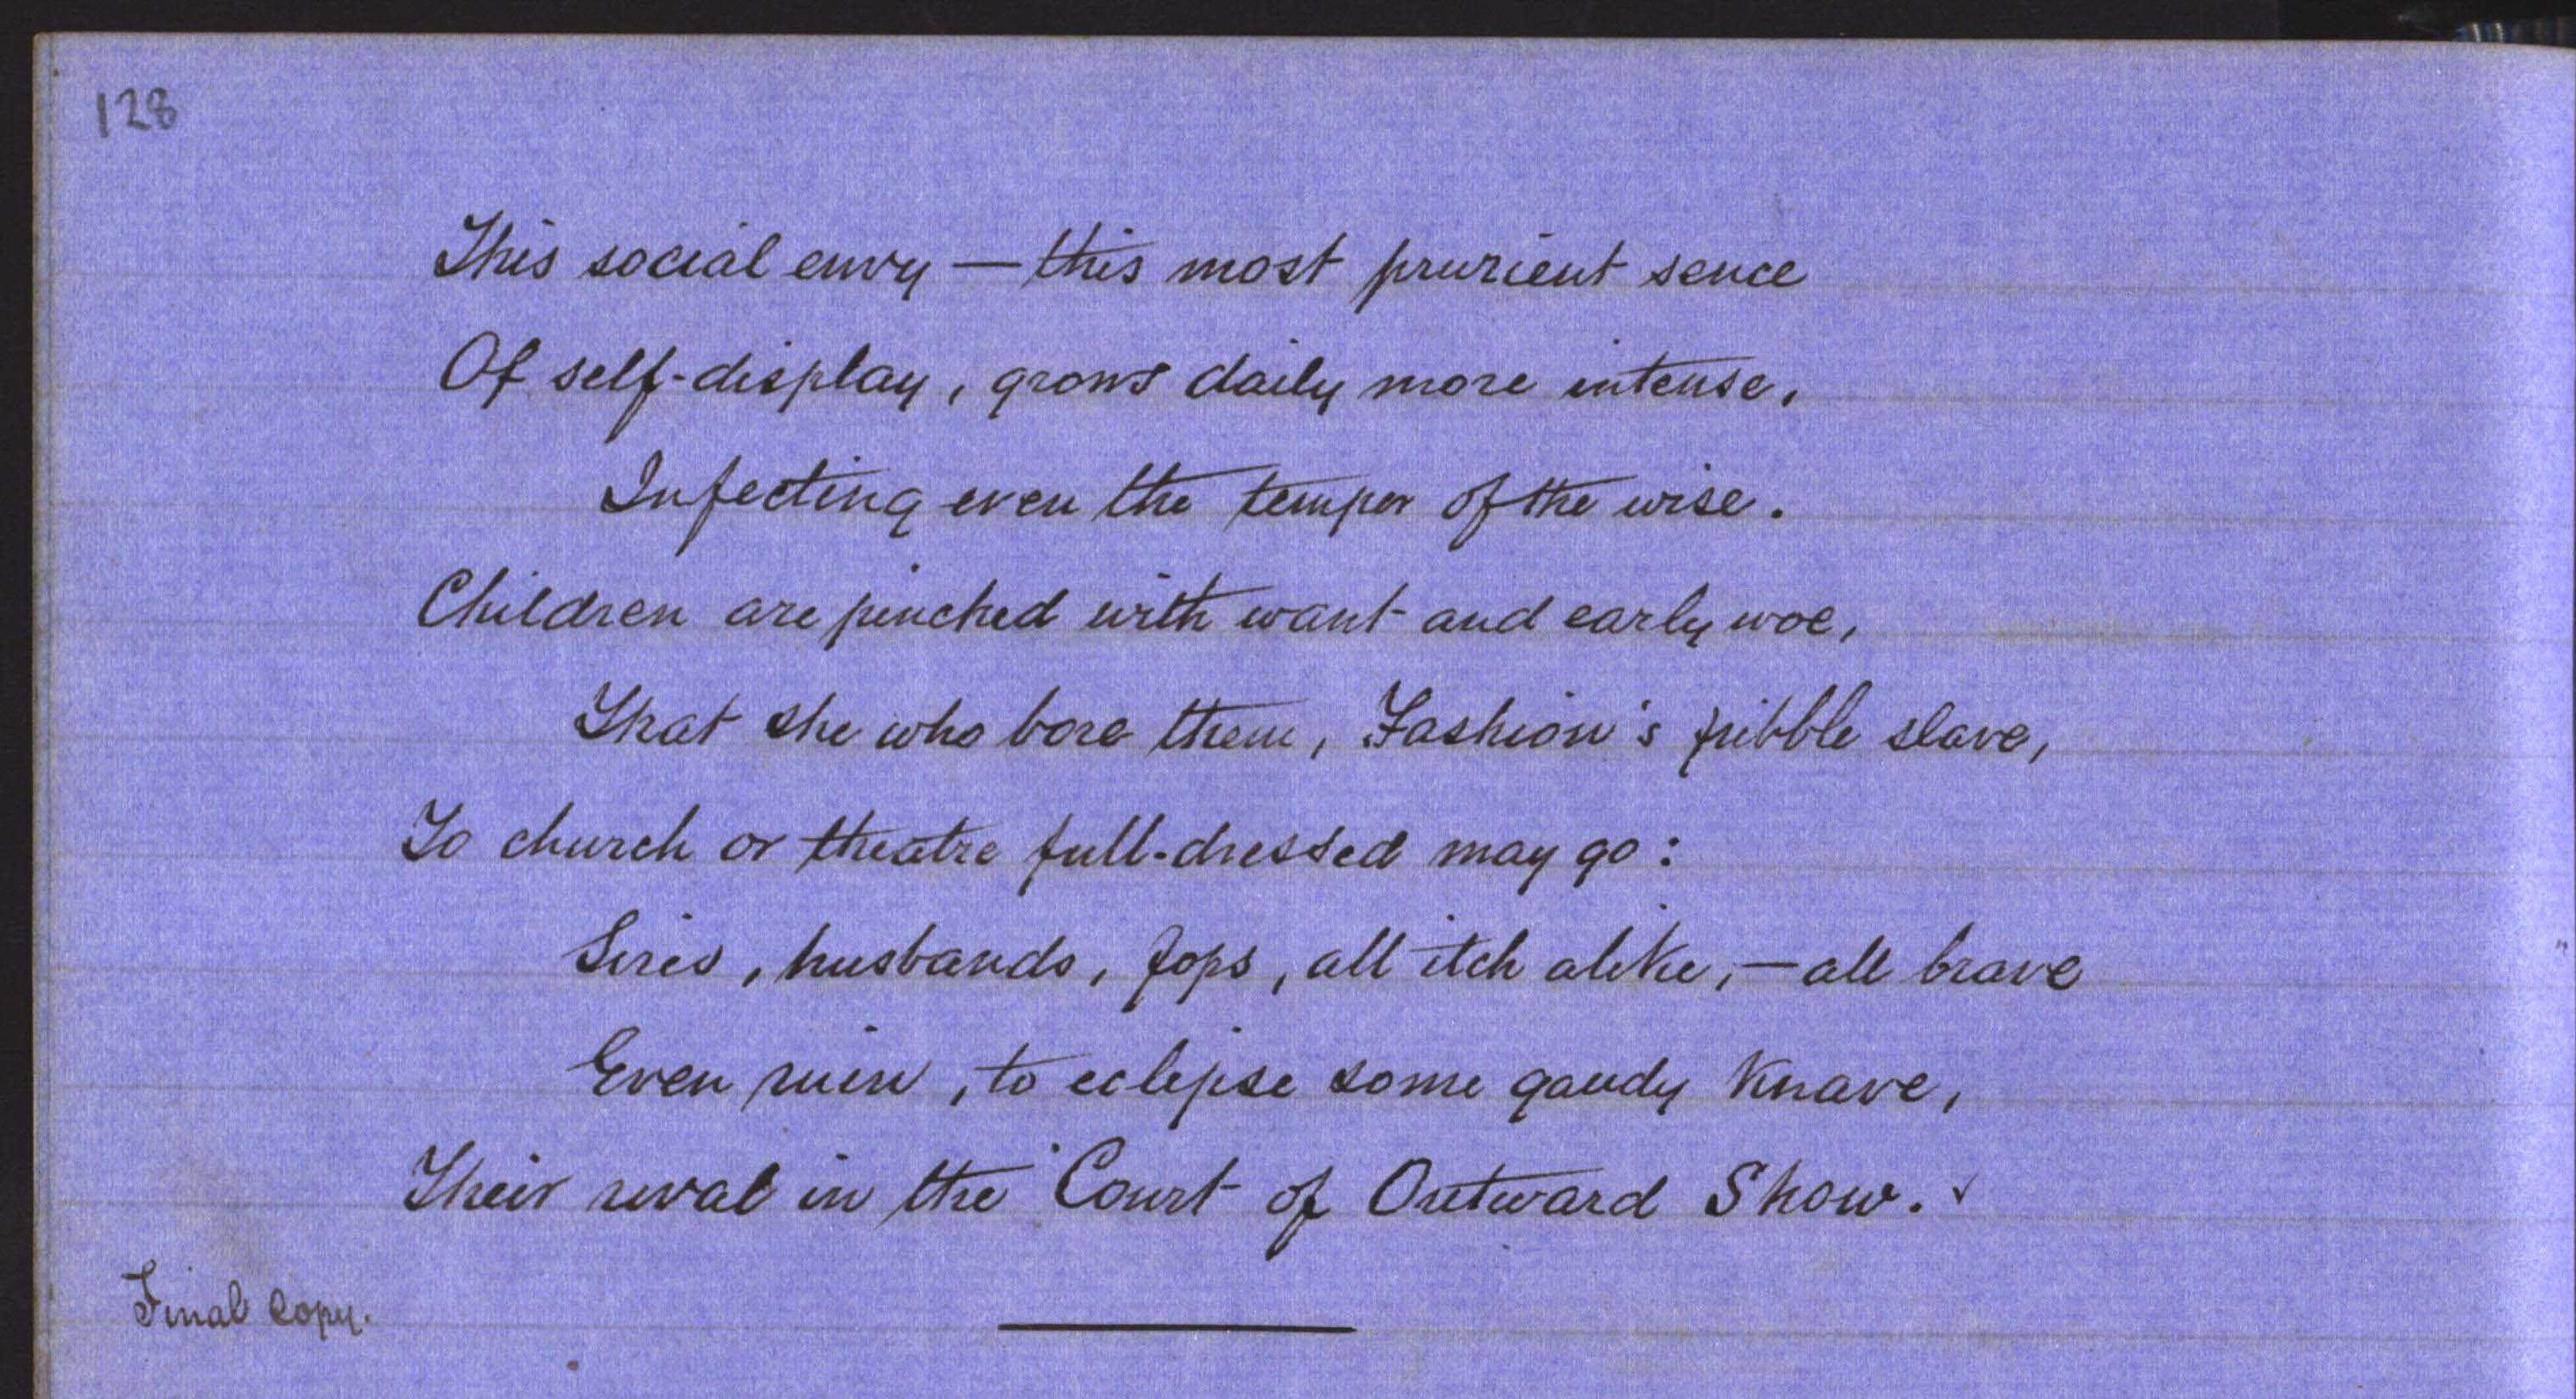 128
This social envy — this most prurient sence
Of self-display, grows daily more intense,
Infecting even the temper of the wise.
Children are pinched with want and early woe,
That she who bore them, Fashion's fribble slave,
To church or theatre full-dressed may go:
Sires, husbands, fops, all itch alike, — all brave
Even ruin, to eclipse some gaudy knave,
Their rival in the Court of Outward Show.
Final copy.